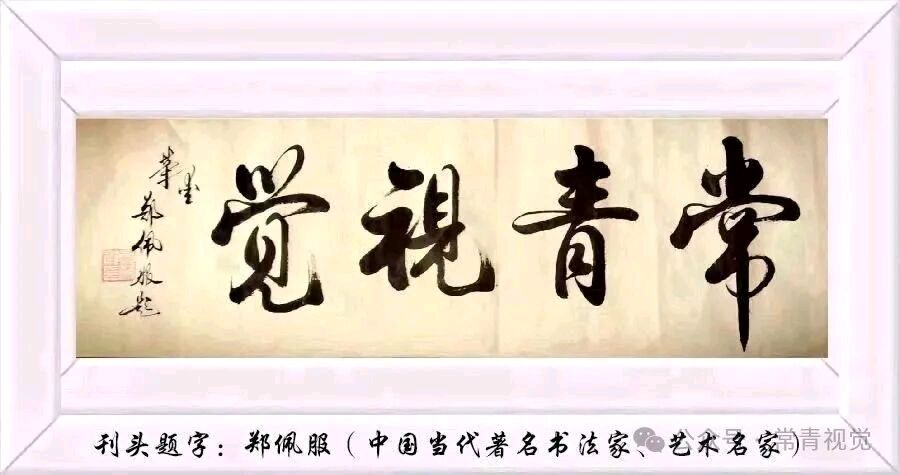 常青視觉
郑佩服题
刊头题字：郑佩服（中国当代著名书法家、艺术名家）
公众号·常青视觉